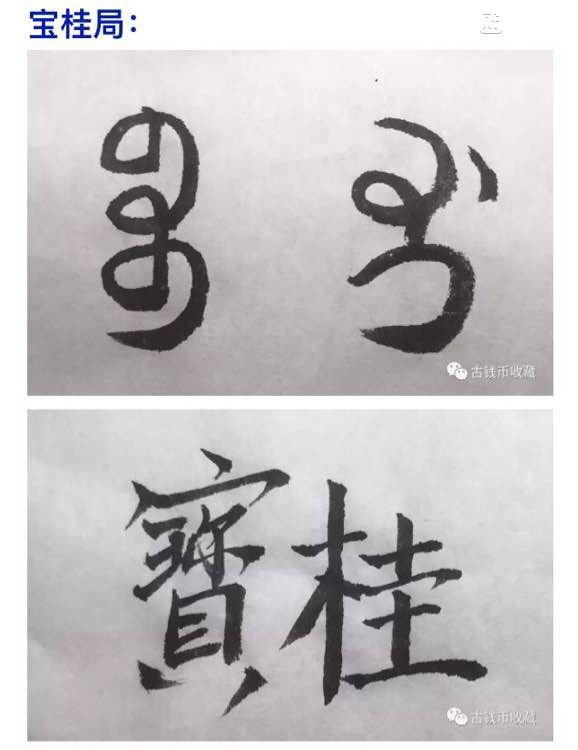 宝桂局：
ᠪᠣᠣ ᡤᡠᡳ
古钱币收藏
寳桂
古钱币收藏